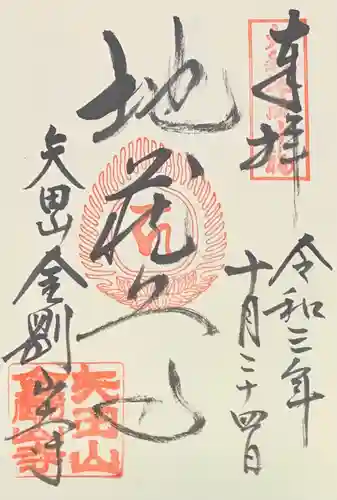 奉拝
令和三年
十月二十四日
地蔵尊
矢田山
金剛山寺
矢田山
金剛山寺